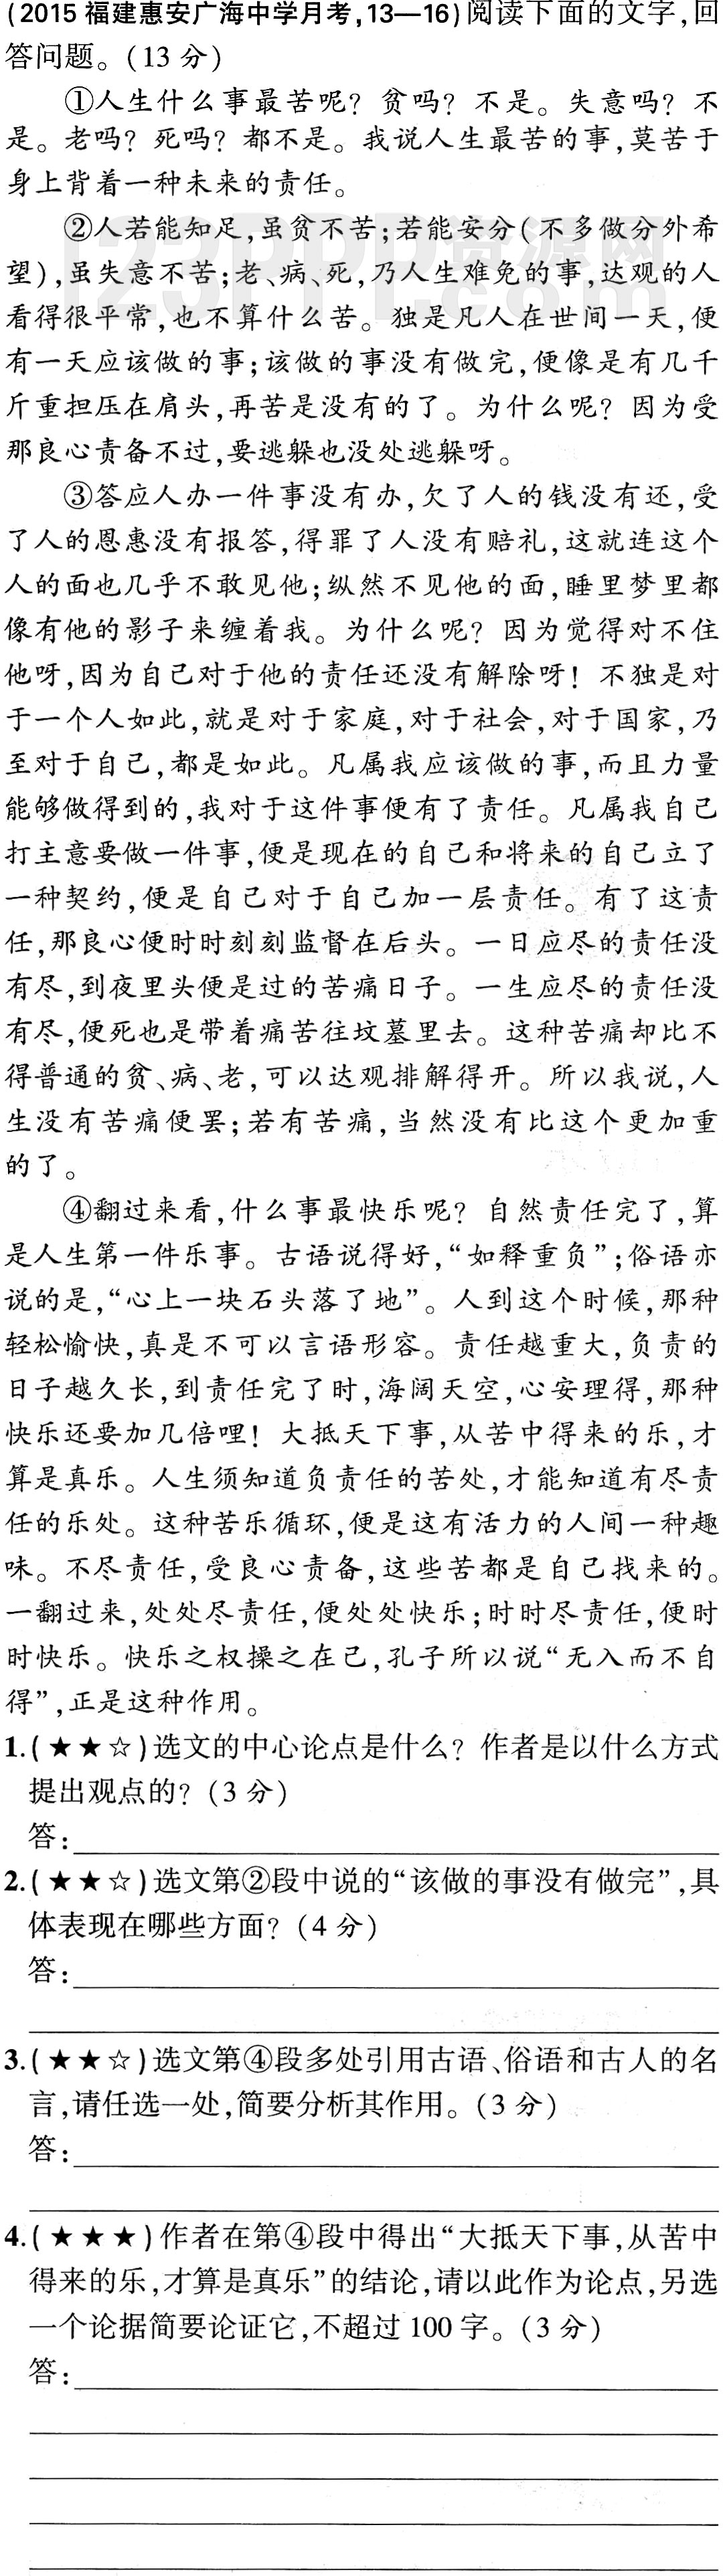 (2015福建惠安广海中学月考,13—16)阅读下面的文字,回
答问题。(13分)
①人生什么事最苦呢？贫吗？不是。失意吗？不
是。老吗？死吗？都不是。我说人生最苦的事,莫苦于
身上背着一种未来的责任。
②人若能知足,虽贫不苦;若能安分(不多做分外希
望),虽失意不苦;老、病、死,乃人生难免的事,达观的人
看得很平常,也不算什么苦。独是凡人在世间一天,便
有一天应该做的事;该做的事没有做完,便像是有几千
斤重担压在肩头,再苦是没有的了。为什么呢？因为受
那良心责备不过,要逃躲也没处逃躲呀。
③答应人办一件事没有办,欠了人的钱没有还,受
了人的恩惠没有报答,得罪了人没有赔礼,这就连这个
人的面也几乎不敢见他;纵然不见他的面,睡里梦里都
像有他的影子来缠着我。为什么呢？因为觉得对不住
他呀,因为自己对于他的责任还没有解除呀！不独是对
于一个人如此,就是对于家庭,对于社会,对于国家,乃
至对于自己,都是如此。凡属我应该做的事,而且力量
能够做得到的,我对于这件事便有了责任。凡属我自己
打主意要做一件事,便是现在的自己和将来的自己立了
一种契约,便是自己对于自己加一层责任。有了这责
任,那良心便时时刻刻监督在后头。一日应尽的责任没
有尽,到夜里头便是过的苦痛日子。一生应尽的责任没
有尽,便死也是带着痛苦往坟墓里去。这种苦痛却比不
得普通的贫、病、老,可以达观排解得开。所以我说,人
生没有苦痛便罢;若有苦痛,当然没有比这个更加重
的了。
④翻过来看,什么事最快乐呢？自然责任完了,算
是人生第一件乐事。古语说得好,“如释重负”;俗语亦
说的是,“心上一块石头落了地”。人到这个时候,那种
轻松愉快,真是不可以言语形容。责任越重大,负责的
日子越久长,到责任完了时,海阔天空,心安理得,那种
快乐还要加几倍哩！大抵天下事,从苦中得来的乐,才
算是真乐。人生须知道负责任的苦处,才能知道有尽责
任的乐处。这种苦乐循环,便是这有活力的人间一种趣
味。不尽责任,受良心责备,这些苦都是自己找来的。
一翻过来,处处尽责任,便处处快乐;时时尽责任,便时
时快乐。快乐之权操之在己,孔子所以说“无入而不自
得”,正是这种作用。
1.(★★☆)选文的中心论点是什么？作者是以什么方式
提出观点的？(3分)
答:
2.(★★☆)选文第②段中说的“该做的事没有做完”,具
体表现在哪些方面？(4分)
答:
3.(★★☆)选文第④段多处引用古语、俗语和古人的名
言,请任选一处,简要分析其作用。(3分)
答:
4.(★★★)作者在第④段中得出“大抵天下事,从苦中
得来的乐,才算是真乐”的结论,请以此作为论点,另选
一个论据简要论证它,不超过100字。(3分)
答: